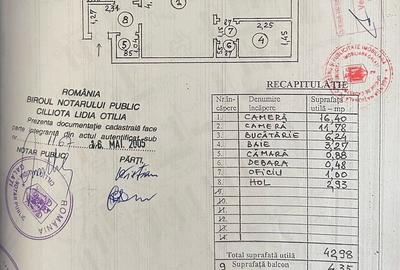 2,34
1,27
8
1
5
1,04
7
2,25
6
4
1,45
RECAPITULAȚIE
Nr. în-
căpere
Denumire
încăpere
Suprafața
utilă - mp
1. CAMERĂ 16,40
2. CAMERĂ 11,78
3. BUCĂTĂRIE 6,24
4. BAIE 3,27
5. CĂMARĂ 0,88
6. DEBARA 0,48
7. OFICIU 1,00
8. HOL 2,93
9.
10.
11.
12.
13.
14.
Total suprafață utilă 42,98
9 Suprafață balcon 4,35
ROMÂNIA
BIROUL NOTARULUI PUBLIC
CILLIOTA LIDIA OTILIA
Prezenta documentație cadastrală face
parte integrantă din actul autentificat sub
nr. 1167 16. MAI. 2005
NOTAR PUBLIC PĂRȚI
ROMÂNIA